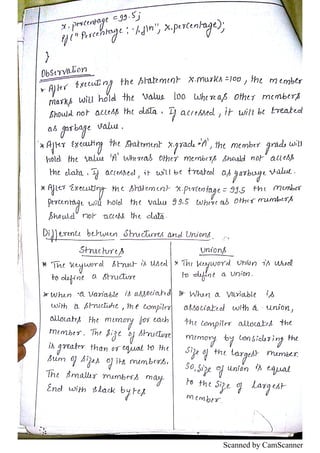 x.percentage = 99.5;
Pf("Percentage : -%.f\n", x.percentage);
}
Observation
* After Executing the statement x.marks=100, the member
marks will hold the value 100 whereas other members
should not access the data. If accessed, it will be treated
as garbage value.
* After Executing the statement x.grade='A', the member grade will
hold the value 'A' whereas other members should not access
the data. If accessed, it will be treated as garbage value.
* After Executing the statement x.percentage = 99.5 the member
percentage will hold the value 99.5 whereas other members
should not access the data.
Difference between Structures and Unions.
Structures
* The keyword struct is used
to define a structure
* when a variable is associated
with a structure, the compiler
allocates the memory for each
member. The size of structure
is greater than or equal to the
sum of sizes of its members.
The smaller members may
End with slack bytes
unions
* The keyword union is used
to define a union.
* When a variable is
associated with a union,
the compiler allocates the
memory by considering the
size of the largest member.
So, size of union is equal
to the size of largest
member
Scanned by CamScanner